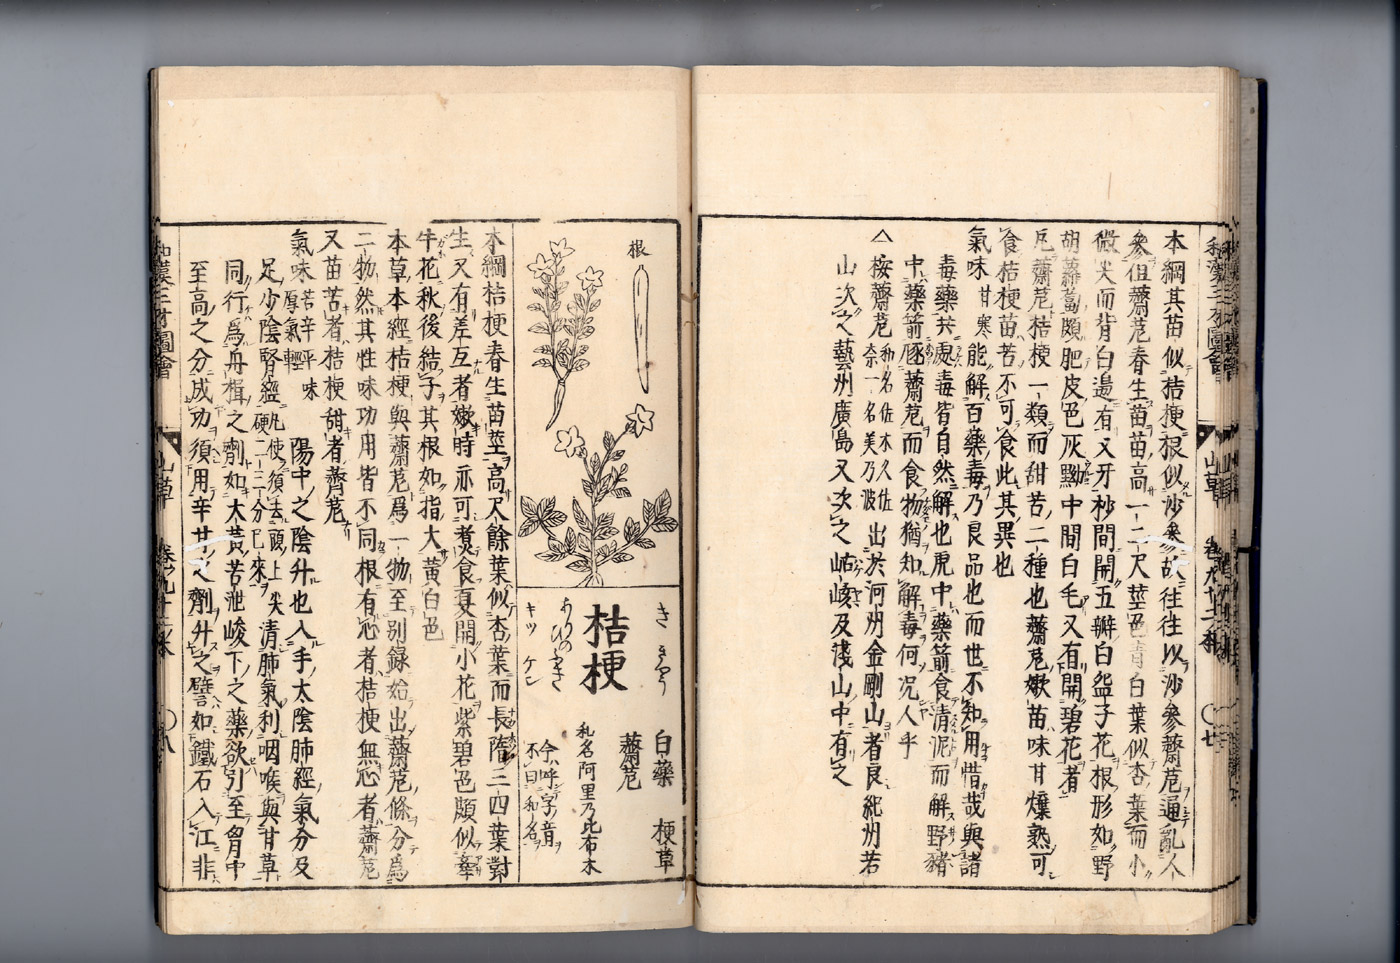 本綱其苗似桔梗根似沙參故往往以沙參薺苨通亂人
參但薺苨春生苗苗高一二尺莖色青白葉似杏葉而小
微尖而背白邉有叉牙杪間開五瓣白盌子花根形如野
胡蘿蔔頗肥皮色灰黝中間白毛又有開碧花者
苨薺苨桔梗一類而甜苦二種也薺苨嫰苗味甘爁熟可
食桔梗苗苦不可食此其異也
氣味 甘寒 能解百藥毒乃良品也而世不知用惜哉與諸
毒藥共處毒皆自然解也虎中藥箭食清泥而解野豬
中藥箭豗薺苨而食物猶知解毒何况人乎
△按薺苨 和名佐木久佐 奈一名美乃波 出於河州金剛山者良紀州若
山次之藝州廣島又次之岵峐及淺山中有之
和漢三才圖會 山草 卷九十二本 ○七
根
ききやう
桔梗
ありのひふき
キツ ケン
白藥 梗草
薺苨
和名阿里乃比布木
今呼字音
不曰和名
本綱桔梗春生苗莖高尺餘葉似杏葉而長隋三四葉對
生又有差互者嫰時亦可煑食夏開小花紫碧色頗似牽
牛花秋後結子其根如指大黄白色
本草本經桔梗與薺苨爲一物至别録始出薺苨條分爲
二物然其性味功用皆不同根有心者桔梗無心者薺苨
又苗苦者桔梗甜者薺苨
氣味 苦辛平味厚氣輕 陽中之陰升也入手太陰肺經氣分及
足少陰腎經 凡使須去頭上尖硬二三分已來 清肺氣利咽喉與甘草
同行爲舟楫之劑如大黄苦泄峻下之藥欲引至胷中
至高之分成功須用辛甘之劑升之譬如鐵石入江非
和漢三才圖會 山草 卷九十二本 ○八